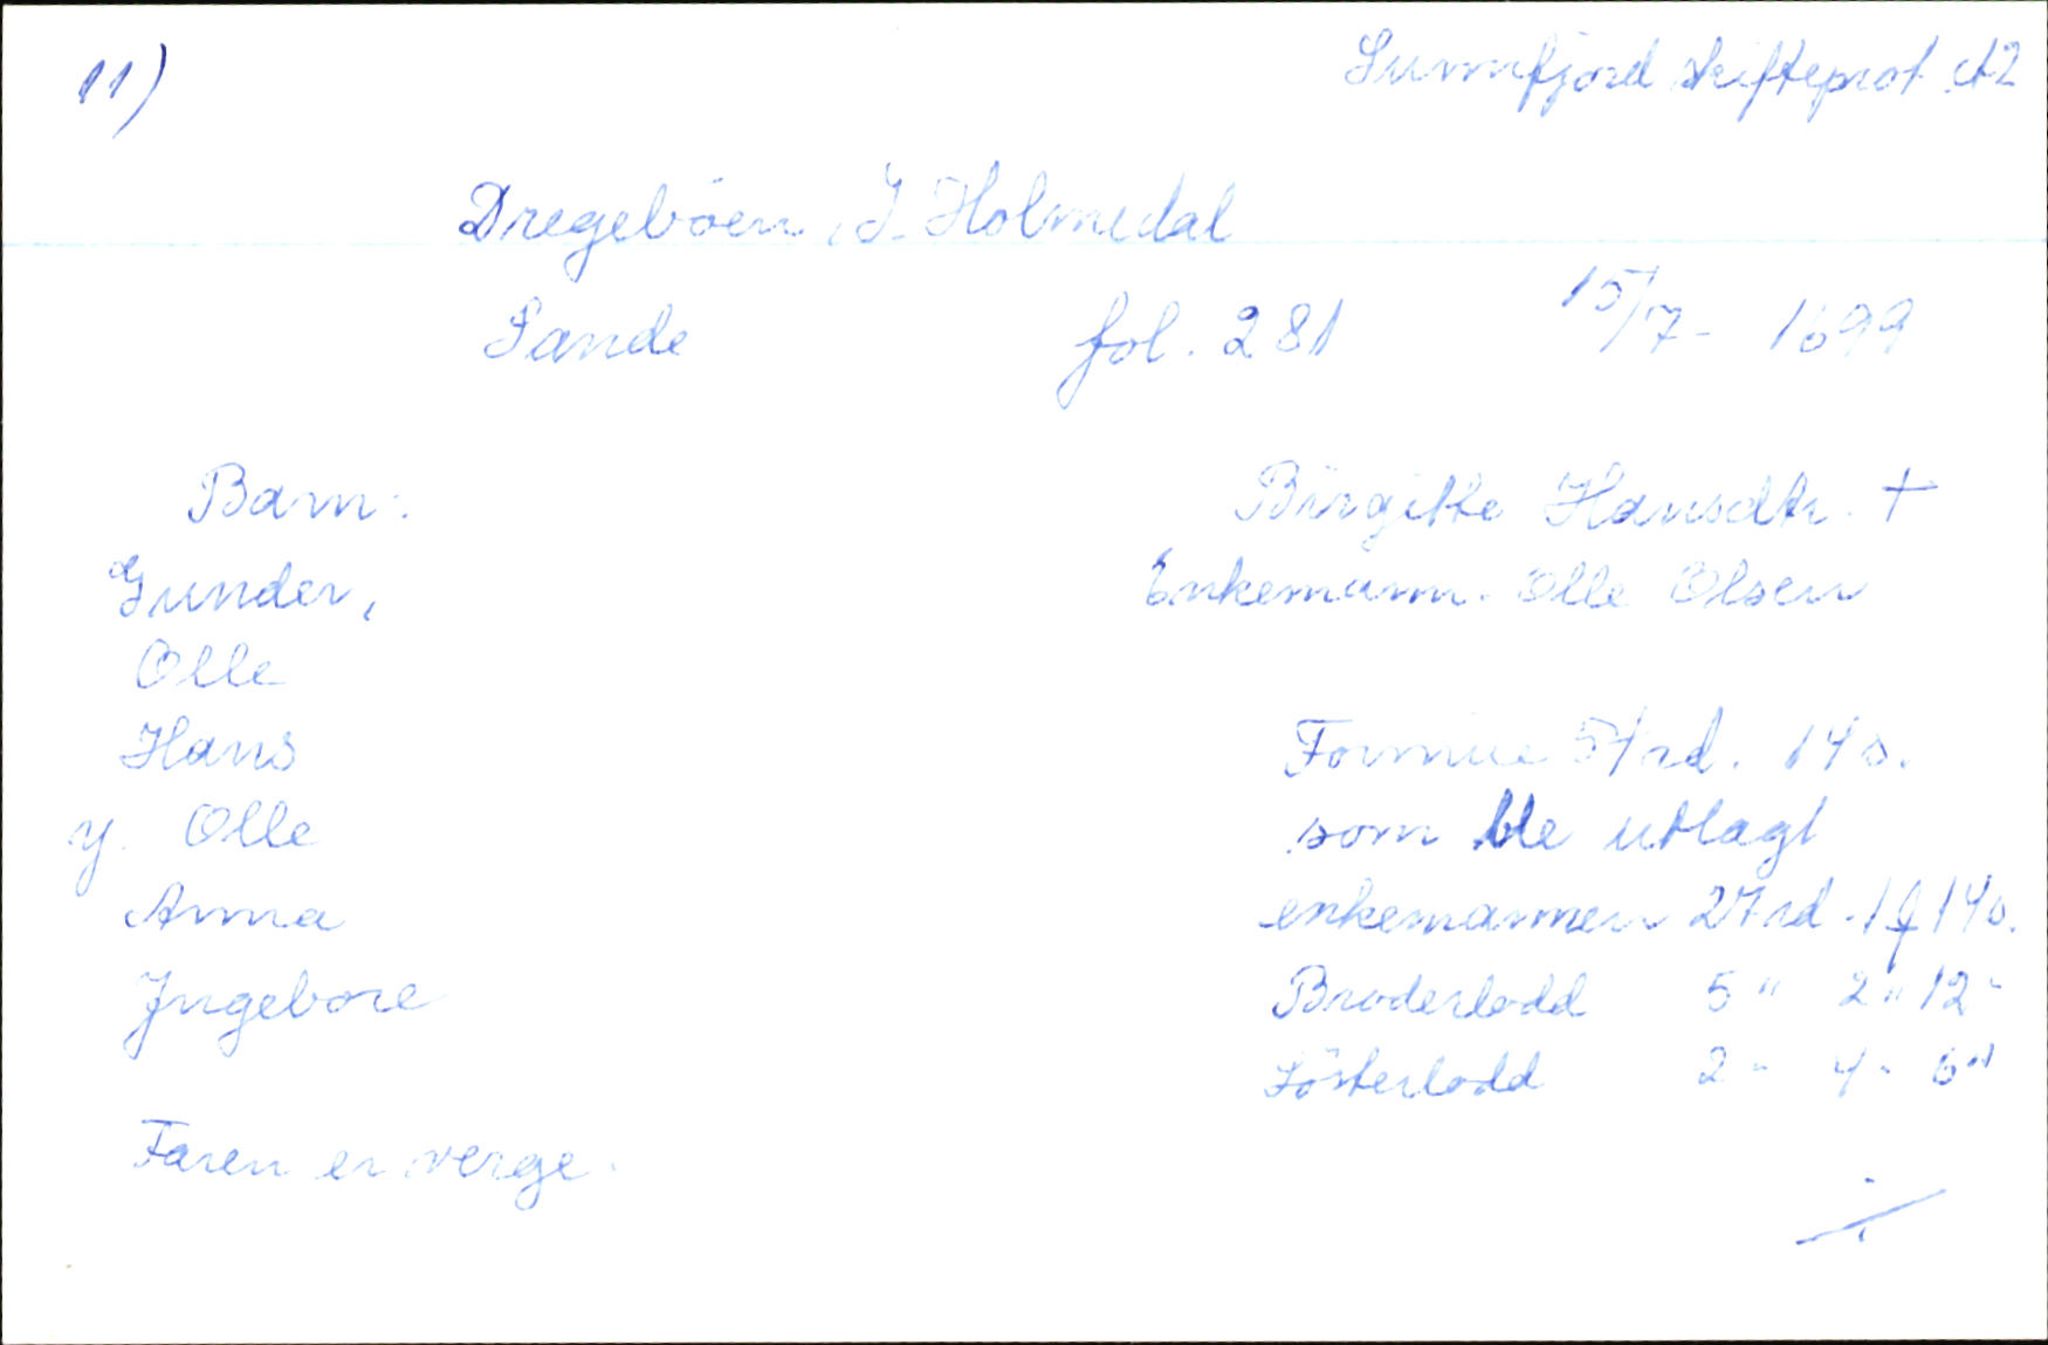 11)
Sunnfjord skifteprot. A2
Dregebøen, I. Holmedal
Sande fol. 281 15/7 - 1699
Barn: Birgitte Hansdtr. +
Gunder, Enkemann. Olle Olsen
Olle
Hans Formue 54 rd. 14 s.
y. Olle som ble utlagt
Anna enkemannen 27 rd. 14 s.
Ingebore Broderlodd 5 " 2 " 12 "
Søsterlodd 2 " 4 " 6 "
Faren er verge.